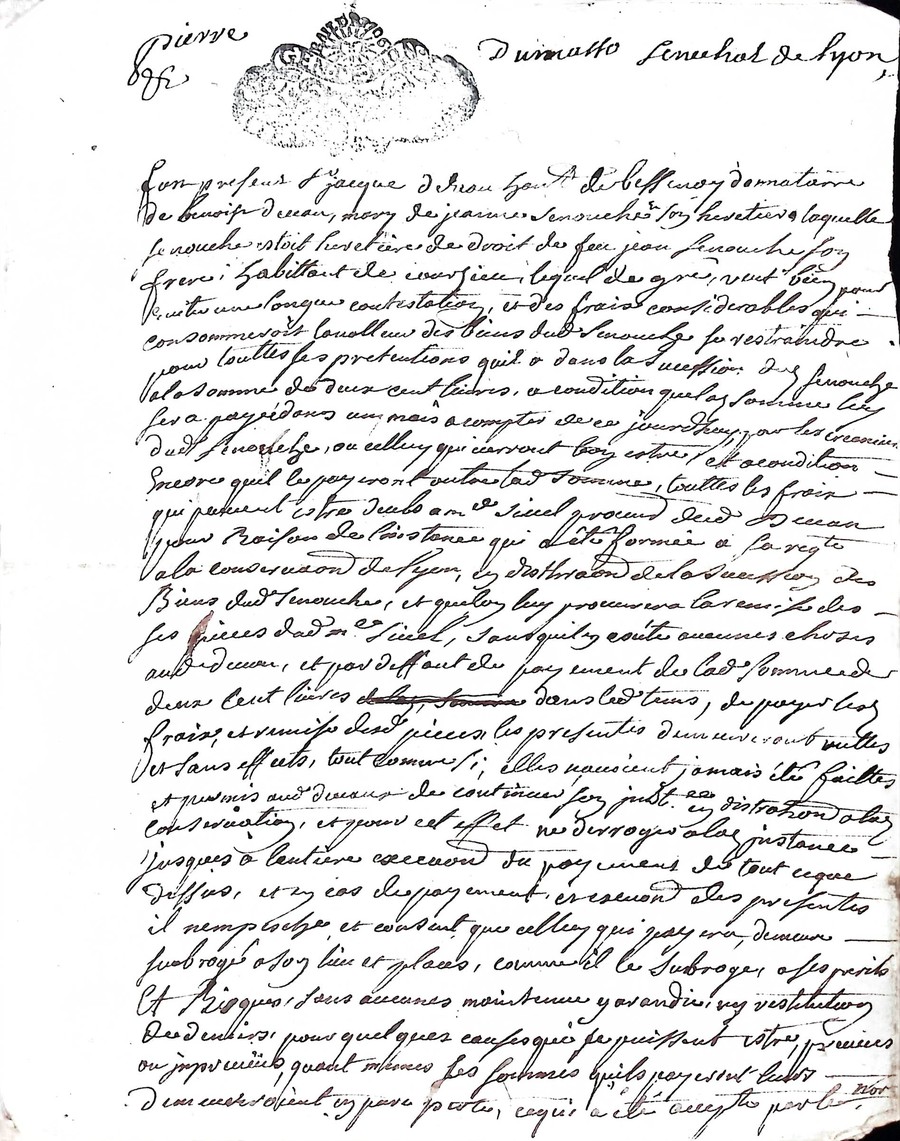 Pierre Dumasso senechal de lyon,
&c
fut present Sr jacque deueau habt de bessenay donnataire
de benoist deueau, mary de jeanne Senouche son heretiere laquelle
senouche estoit heretiere de droit de feu jean Senouche son
frere, habittant de courzieu, lequel de gré, veut bien pour
euiter une longue contestation, et des frais considerables qui
consommeroit la valleur des biens dud Senouche se restraindre
pour touttes ses pretentions quil a dans la succession dud senouche
a la somme de deux cent liures, a condition que lad somme luy
sera payée dans un mois a compter de ce jourdhuy, par les creanciers
dud Senouche, ou celluy qui verront bon estre, et a condition
Encore quil le payeront outre lad somme, touttes les frais
qui peuvent estre deubs a me Siuel procureur dud deueau
pour Raison de linstance qui a été formée a sa reqte
a la conservaon de lyon, en distraaon de la succession des
Biens dud Senouche, et quelon luy procurera la remise des
ses pieces dud me Siuel, sans quil en coute aucunes choses
aud deueau, et par deffaut de payement de lad somme de
deux cent liures dans led tems, de payer les
frais, et remise desd pieces, les presentes demeureront nulles
et sans effects, tout comme si, elles nauoient jamais été faittes
et permis aud deueau de continuer son inst. en distration a lad
conservation, et pour cet effet ne derroger a lad instance
jusques a lentiere execuon du payement de tout ceque
dessus, et en cas de payement, execuon des presentes
il nempesche et consent que celluy qui payera, demeure
subrogé a son lieu et place, comme il le subroge, a ses perils
Et Risques, sans aucunes maintenue garandie, ny restitution
de deniers, pour quelques causes que se puissent estre, preuües
ou impreuües, quant mesmes les sommes quils payeront leurs
demeureroient en pure perte, ce qui a été accepté par le nor